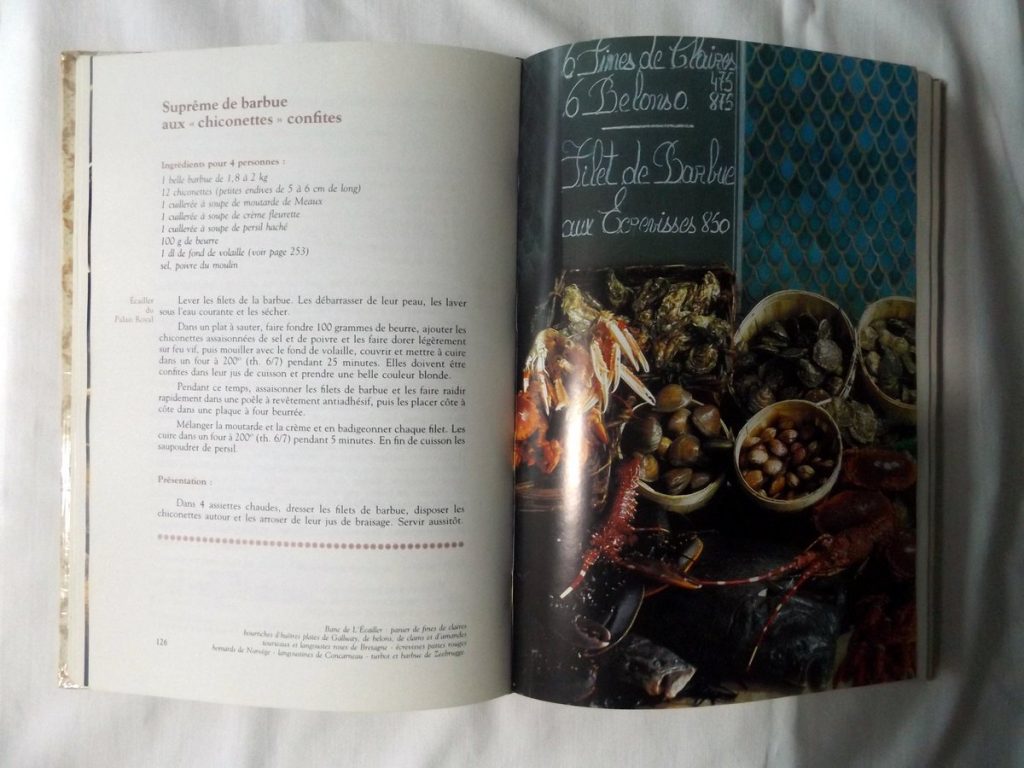 Suprême de barbue
aux « chiconettes » confites
Ingrédients pour 4 personnes :
1 belle barbue de 1,8 à 2 kg
12 chiconettes (petites endives de 5 à 6 cm de long)
1 cuillerée à soupe de moutarde de Meaux
1 cuillerée à soupe de crème fleurette
1 cuillerée à soupe de persil haché
100 g de beurre
1 dl de fond de volaille (voir page 253)
sel, poivre du moulin
Écailler
du
Palais Royal
Lever les filets de la barbue. Les débarrasser de leur peau, les laver
sous l'eau courante et les sécher.
Dans un plat à sauter, faire fondre 100 grammes de beurre, ajouter les
chiconettes assaisonnées de sel et de poivre et les faire dorer légèrement
sur feu vif, puis mouiller avec le fond de volaille, couvrir et mettre à cuire
dans un four à 200° (th. 6/7) pendant 25 minutes. Elles doivent être
confites dans leur jus de cuisson et prendre une belle couleur blonde.
Pendant ce temps, assaisonner les filets de barbue et les faire raidir
rapidement dans une poêle à revêtement antiadhésif, puis les placer côte à
côte dans une plaque à four beurrée.
Mélanger la moutarde et la crème et en badigeonner chaque filet. Les
cuire dans un four à 200° (th. 6/7) pendant 5 minutes. En fin de cuisson les
saupoudrer de persil.
Présentation :
Dans 4 assiettes chaudes, dresser les filets de barbue, disposer les
chiconettes autour et les arroser de leur jus de braisage. Servir aussitôt.
Banc de L'Écailler : panier de fines de claires
bourriches d'huîtres plates de Galway, de bélons, de clams et d'amandes
tourteaux et langoustes roses de Bretagne - écrevisses pattes rouges
homards de Norvège - langoustines de Concarneau - turbot et barbue de Zeebrugge.
126
6 Fines de Claires 475
6 Belons 875
Filet de Barbue
&
aux Ecrevisses 850